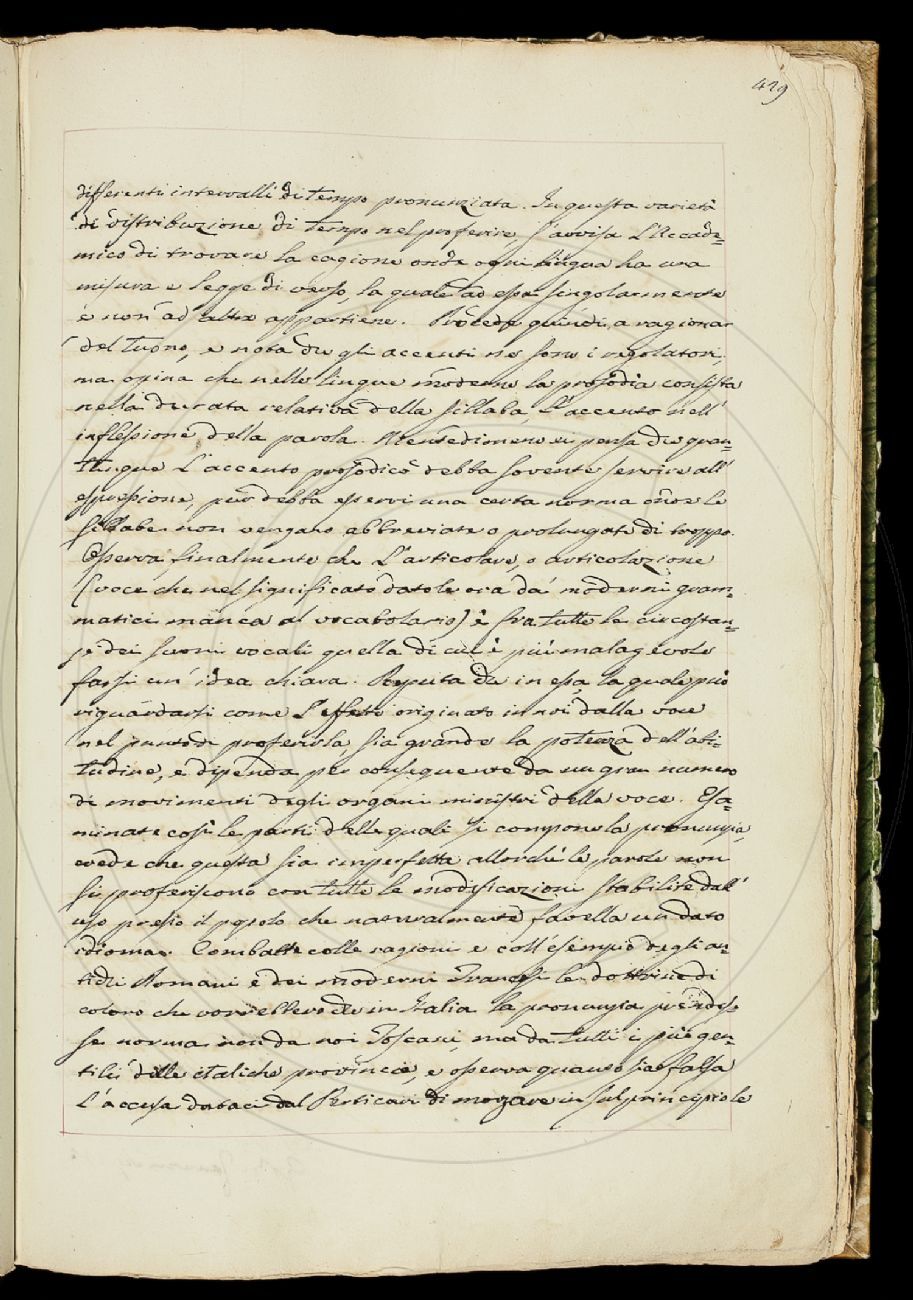 429
differenti intervalli di tempo pronunziata. In questa varietà
di distribuzione di tempo nel proferire, s'avvisa l'Accade=
mico di trovare la cagione onde ogni lingua ha una
misura e legge di verso, la quale ad essa singolarmente
e non ad altre appartiene. Procede quindi a ragionar
del tuono, e nota che gli accenti ne sono i regolatori,
ma opina che nelle lingue moderne la prosodia consista
nella durata relativa della sillaba, l'accento nell'
inflessione della parola. Nientedimeno ei pensa che quan=
tunque l'accento prosodico debba sovente servire all'
espressione, pur debba esservi una certa norma onde le
sillabe non vengano abbreviate o prolungate di troppo.
Osserva finalmente che l'articolare, o articolazione
(voce che nel significato datole ora da' moderni gram=
matici manca al vocabolario) è fra tutte le circostan=
ze dei suoni vocali quella di cui è più malagevole
farsi un' idea chiara. Reputa che in essa, la quale può
riguardarsi come l'effetto originato in noi dalla voce
nel punto di proferirla sia grande la potenza dell'abi=
tudine, e dipenda per conseguente da un gran numero
di movimenti degli organi ministri della voce. Esa=
minate così le parti delle quali si compone la pronunzia,
crede che questa sia imperfetta allorchè le parole non
si proferiscono con tutte le modificazioni stabilite dall'
uso presso il popolo che naturalmente favella un dato
idioma. Combatte colle ragioni e coll'esempio degli an=
tichi Romani e dei moderni Francesi le dottrine di
coloro che vorrebbero che in Italia la pronunzia prendes=
se norma non da noi Toscani, ma da tutti i più gen=
tili delle italiche provincie, e osserva quanto sia falsa
l'accusa dataci dal Perticari di mozzare in sul principio le